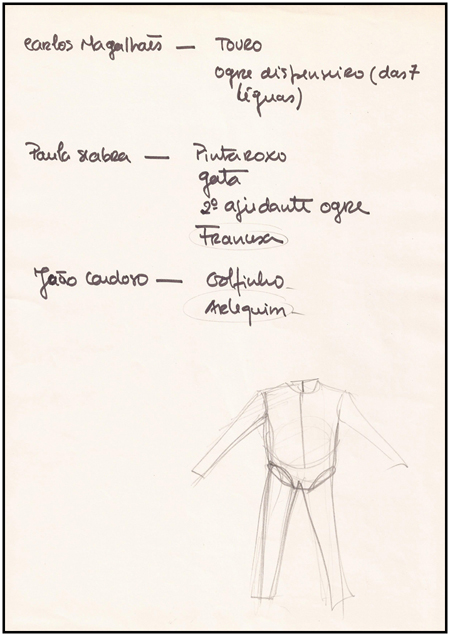 Carlos Magalhães — Touro
ogre dispenseiro (das 7
léguas)
Paula Seabra — Pintaroxo
gata
2º ajudante ogre
Francesa
João Cardoso — Golfinho
Arlequim